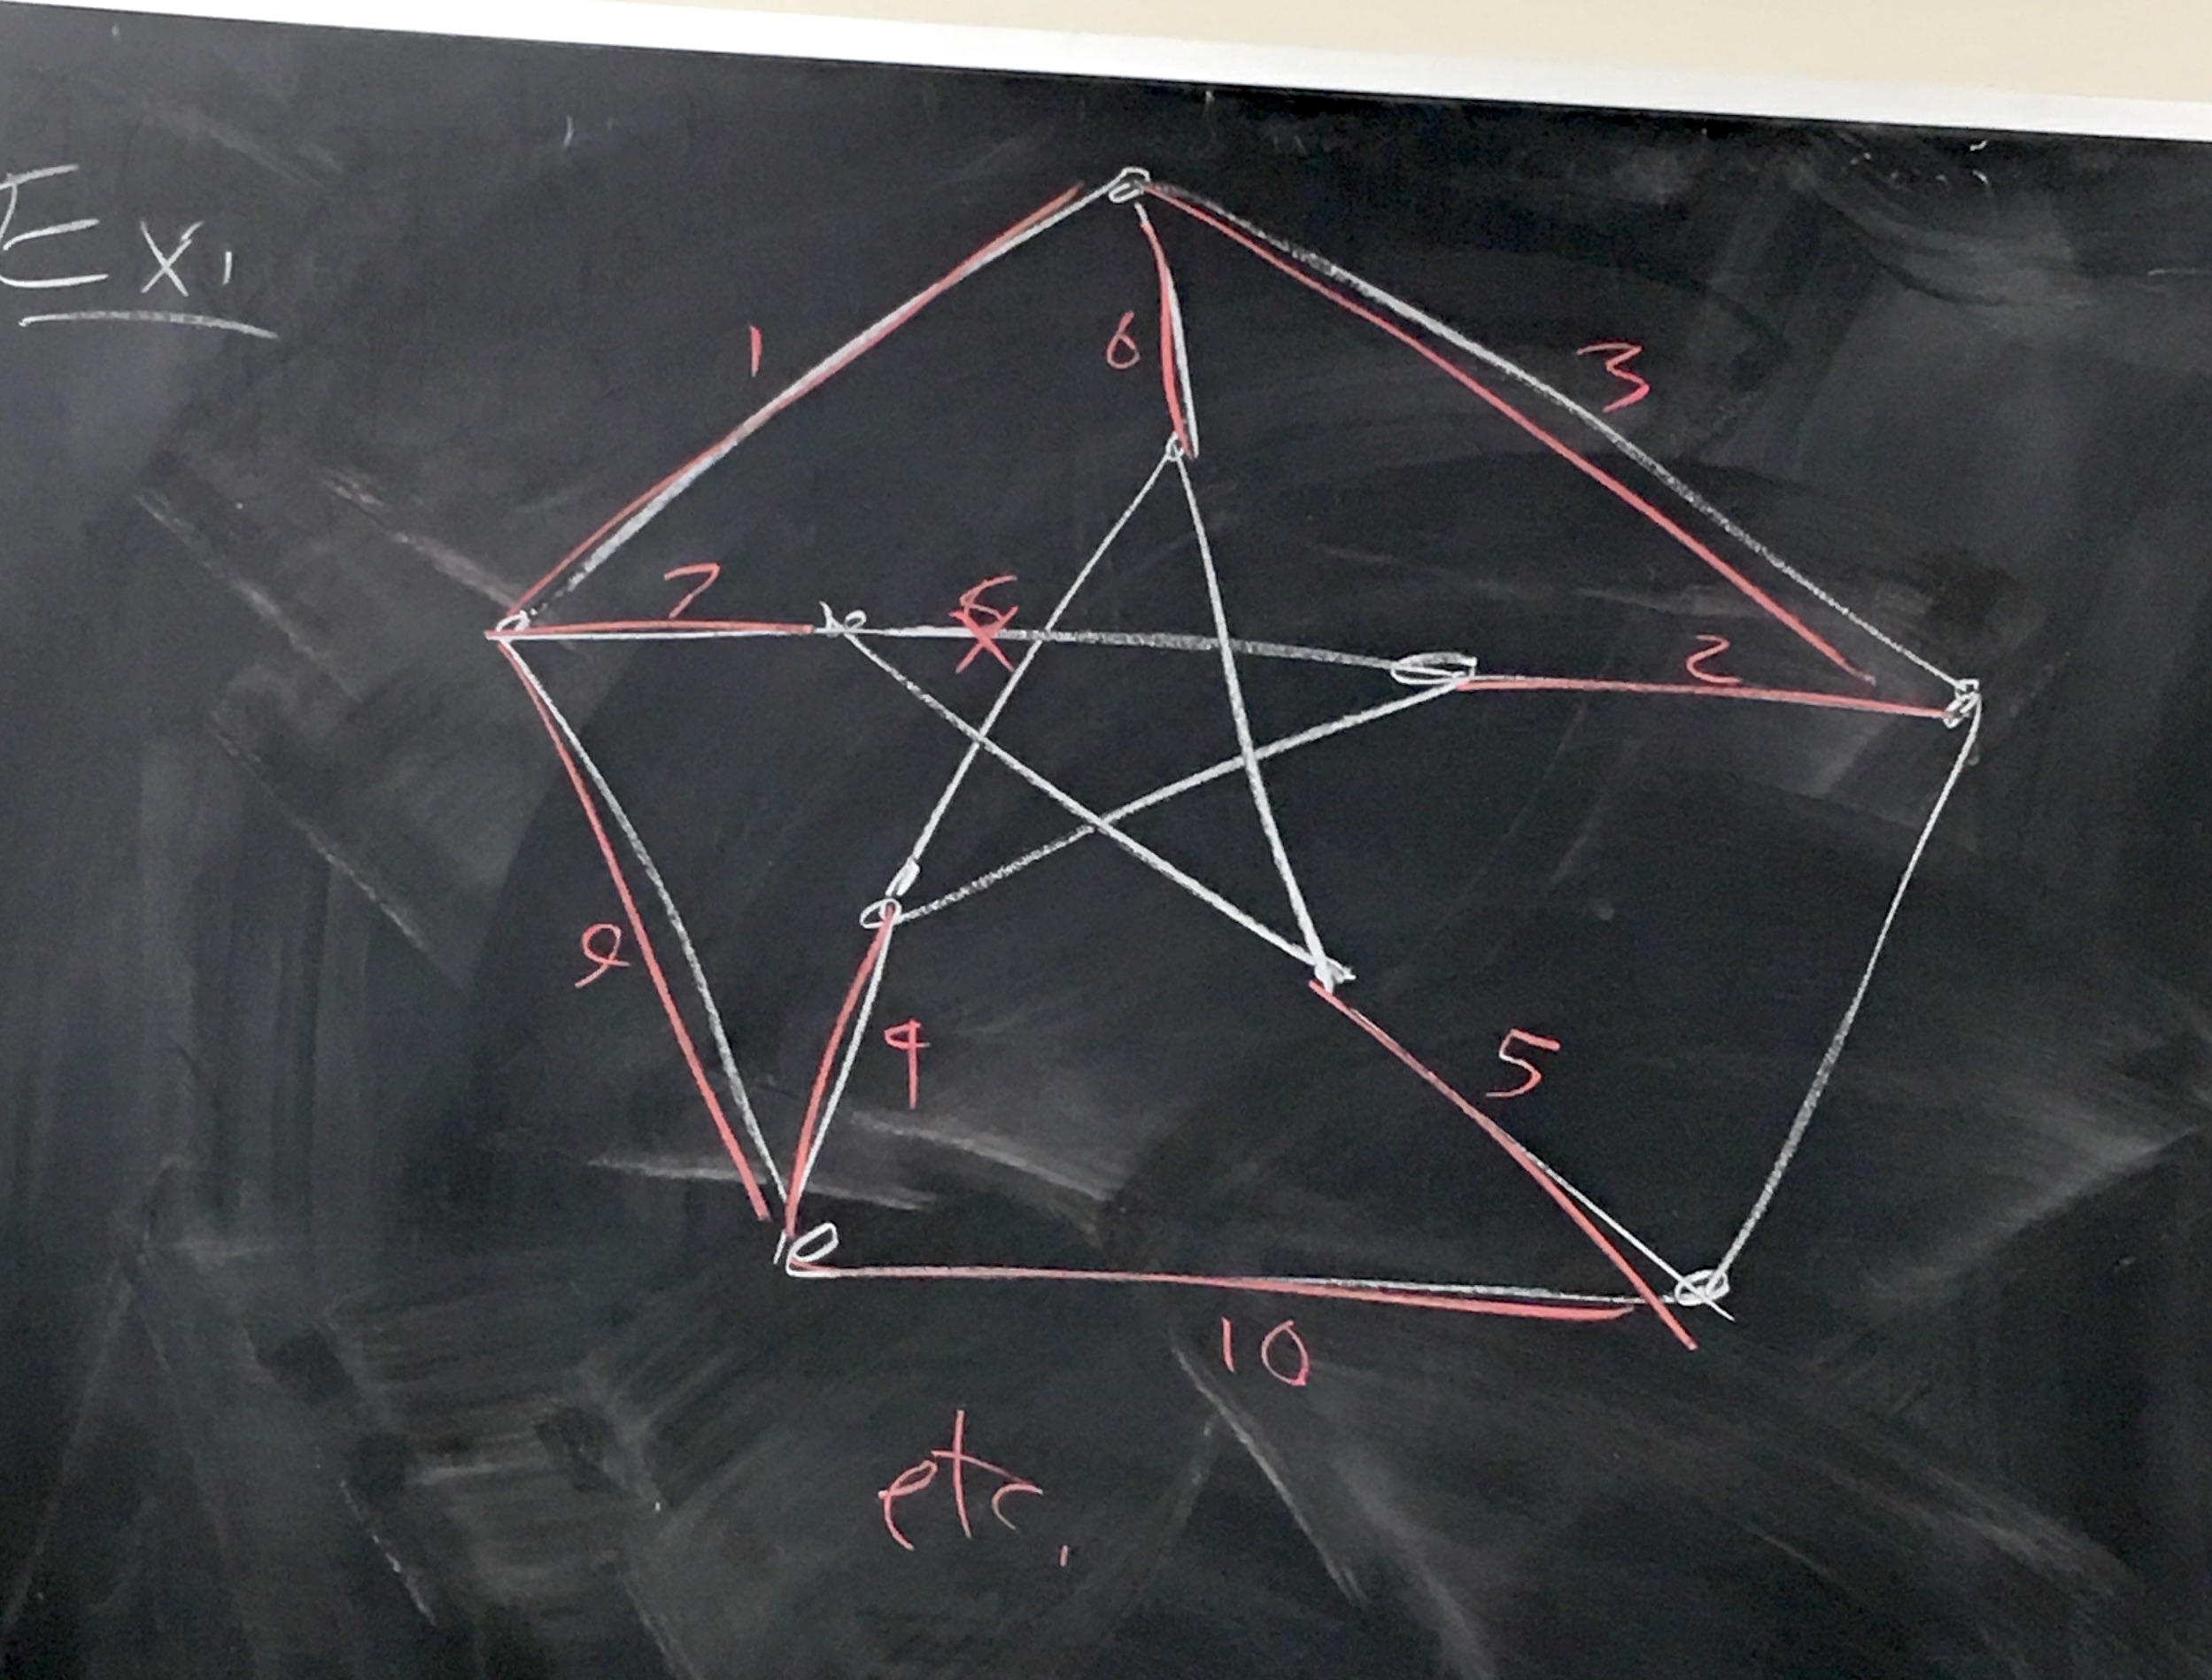 Ex.
1
6
3
7
8
2
9
4
5
10
etc.